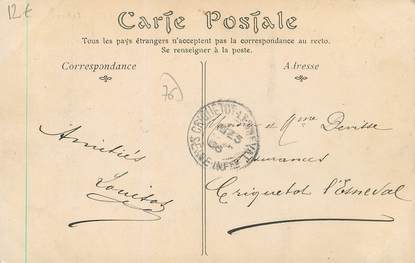 12 €
Carte Postale
Tous les pays étrangers n'acceptent pas la correspondance au recto.
Se renseigner à la poste.
Correspondance
Adresse
76
CRIQUETOT-L'ESNEVAL
SEINE INFRE
et Mme
Amitiés
Criquetot l'Esneval